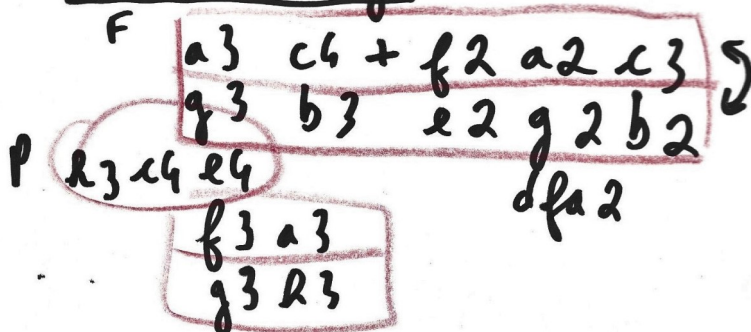 F
a3 c4 + f2 a2 c3
g3 b3 e2 g2 b2
P h3 c4 e4
dfa2
f3 a3
g3 h3